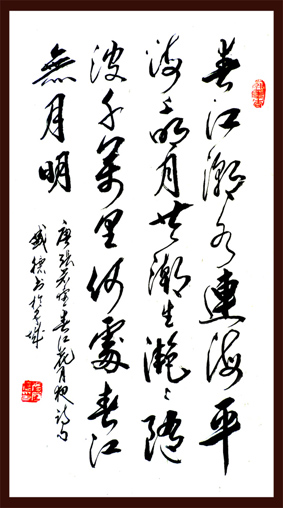 春江潮水連海平
海上明月共潮生灧〻隨
波千萬里何處春江
無月明
唐張若虛春江花月夜詩句
書於